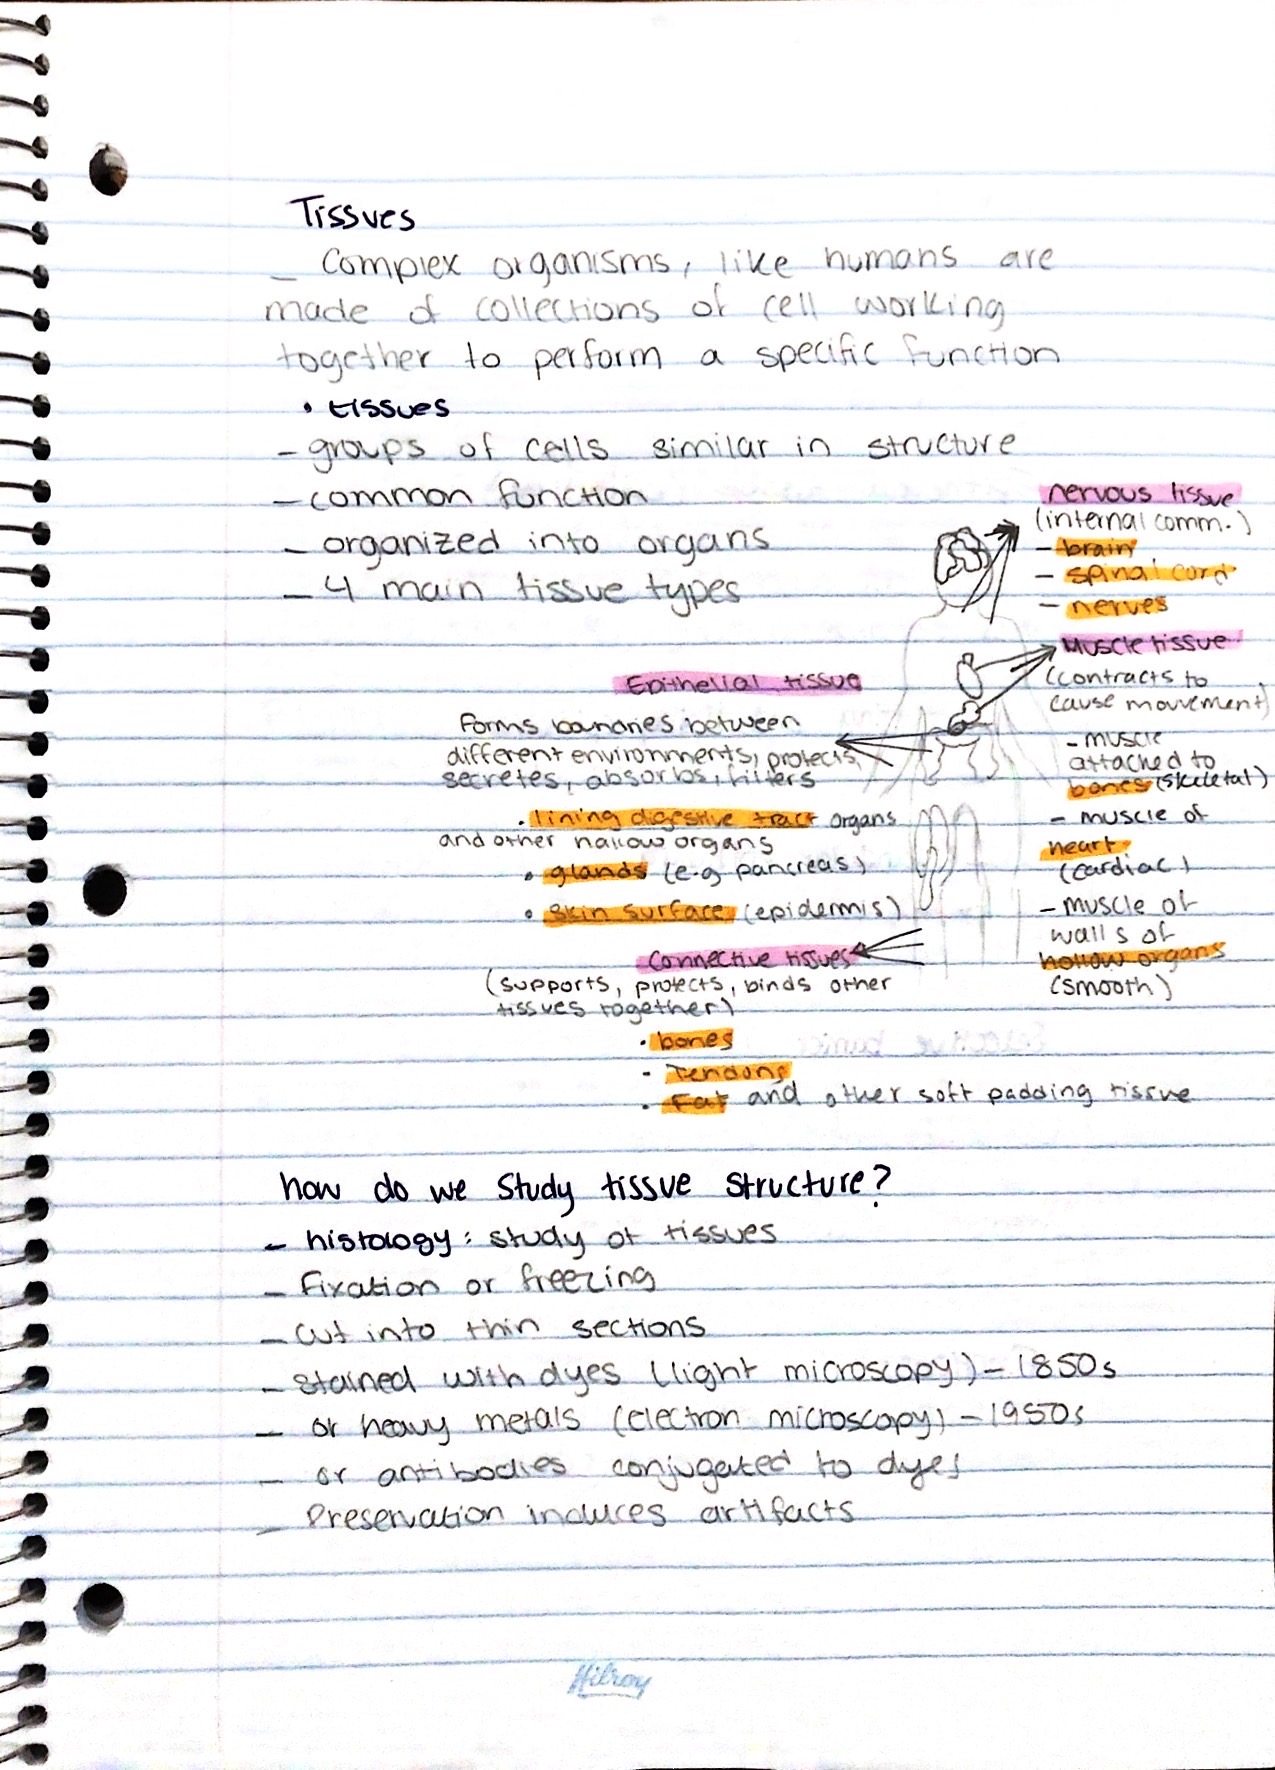 Tissues
- Complex organisms, like humans are
made of collections of cell working
together to perform a specific function
• tissues
- groups of cells similar in structure
- common function
- organized into organs
- 4 main tissue types
nervous tissue
(internal comm.)
- brain
- spinal cord
- nerves
Muscle tissue
(contracts to
cause movement)
- muscle
attached to
bones (skeletal)
- muscle of
heart
(cardiac)
- muscle of
walls of
hollow organs
(smooth)
Epithelial tissue
Forms bounaries between
different environments, protects,
secretes, absorbs, filters
• lining digestive tract organs
and other hallow organs
• glands (e.g pancreas)
• skin surface (epidermis)
Connective tissues
(supports, protects, binds other
tissues together)
• bones
- Tendons
• Fat and other soft padding tissue
how do we study tissue structure?
- histology: study of tissues
- Fixation or freezing
- cut into thin sections
- stained with dyes (light microscopy) - 1850s
- or heavy metals (electron microscopy) - 1950s
- or antibodies conjugated to dyes
- Preservation induces artifacts
Hilroy